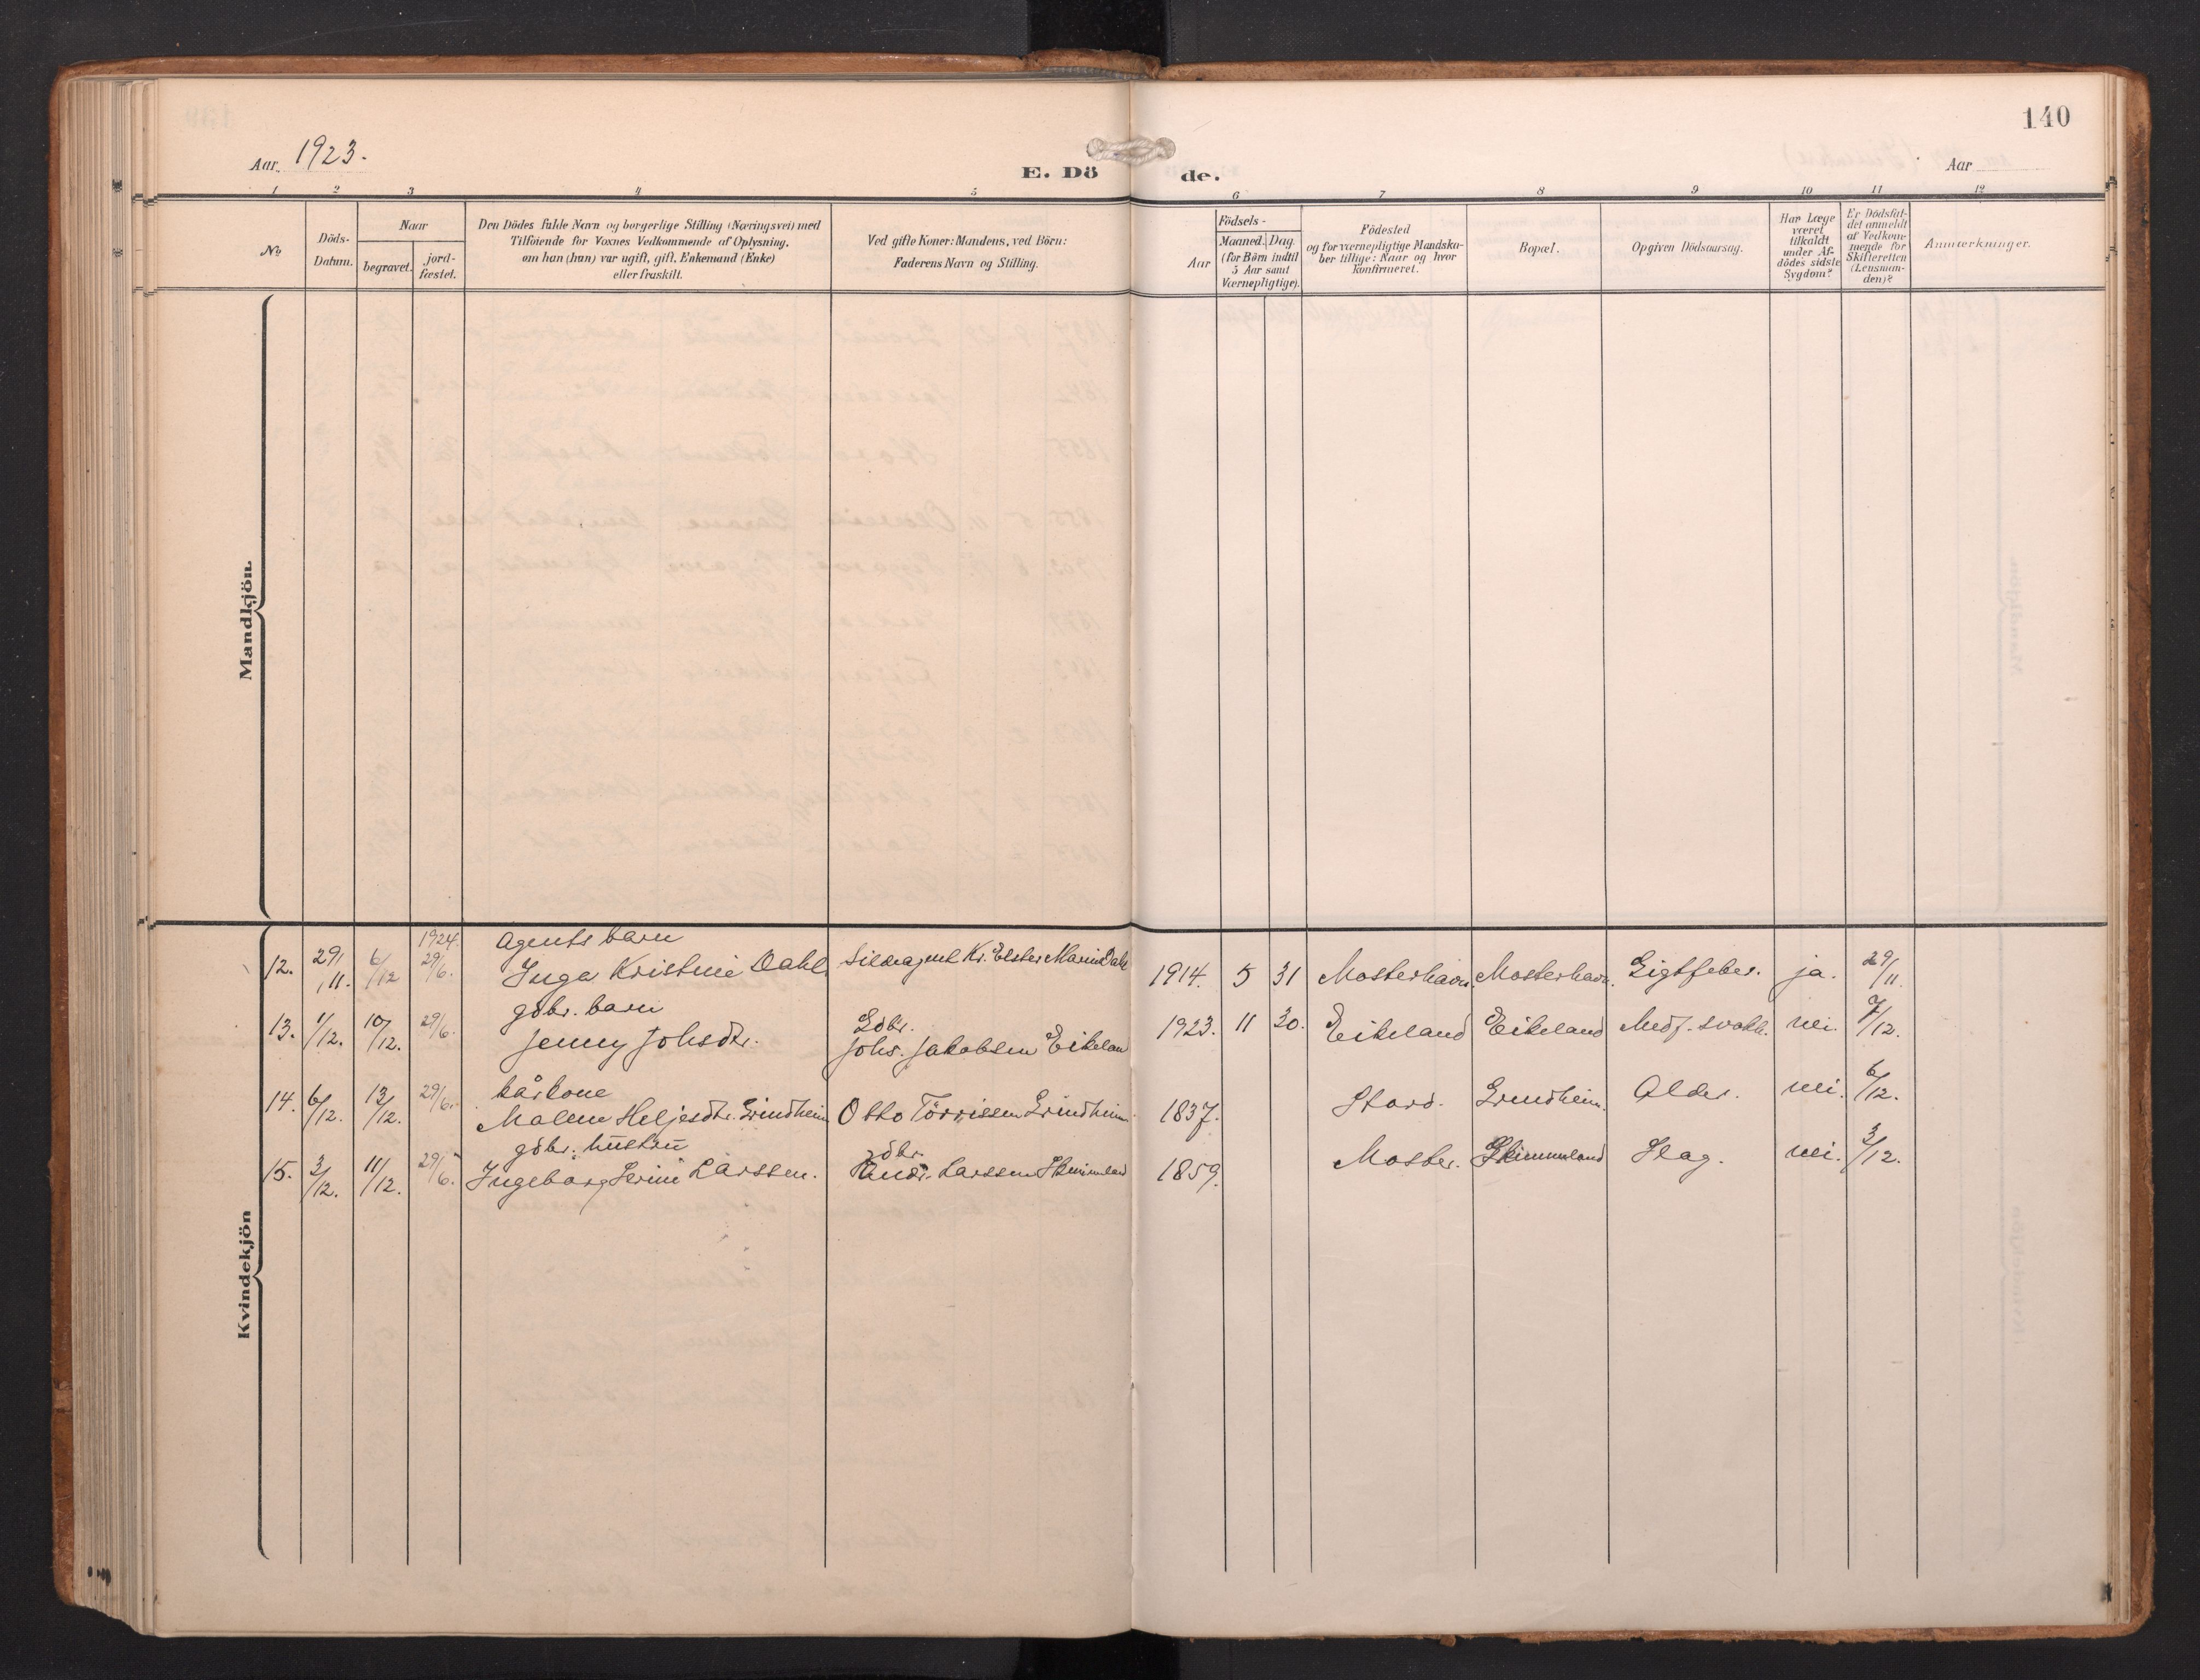 140
Aar 1923.
E. Dö de.
Aar
1 2 3 4 5 6 7 8 9 10 11 12
No
Döds-
Datum.
Naar
begravet.
jord-
fæstet.
Den Dödes fulde Navn og borgerlige Stilling (Næringsvei) med
Tilföiende for Voxnes Vedkommende af Oplysning,
om han (hun) var ugift, gift, Enkemand (Enke)
eller fraskilt.
Ved gifte Koner: Mandens, ved Börn:
Faderens Navn og Stilling.
Födsels-
Aar
Maaned. Dag
(for Börn indtil
5 Aar samt
Værnepligtige).
Födested
og for værnepligtige Mandska-
ber tillige: Naar og hvor
konfirmeret.
Bopæl.
Opgiven Dödsaarsag.
Har Læge
været
tilkaldt
under Af-
dödes sidste
Sygdom?
Er Dödsfal-
det anmeldt
af Vedkom-
mende for
Skifteretten
(Lensman-
den)?
Anmærkninger.
Mandkjön.
Kvindekjön
1924. agents barn
12. 29/11. 6/12 29/6. Inga Kristine Dahl Sildeagent Kr. Elster Marin Dahl 1914. 5 31 Mosterhavn. Mosterhavn. Gigtfeber. ja. 29/11.
gdbr. barn Gdbr.
13. 1/12. 10/12. 29/6. Jenny Johsdtr. Johs. Jakobsen Eikeland 1923. 11 30. Eikeland Eikeland Medf. svakh. nei. 7/12.
kårkone
14. 6/12. 13/12. 29/6. Malene Heljesdtr. Grindheim Otto Törrissen Grindheim 1837. Stord. Grindheim. Alder. nei. 6/12.
gdbr. hustru gdbr.
15. 3/12. 11/12. 29/6. Ingeborg Serine Larssen. Andr. Larssen Skimmeland 1859. Moster. Skimmeland Slag. nei. 3/12.